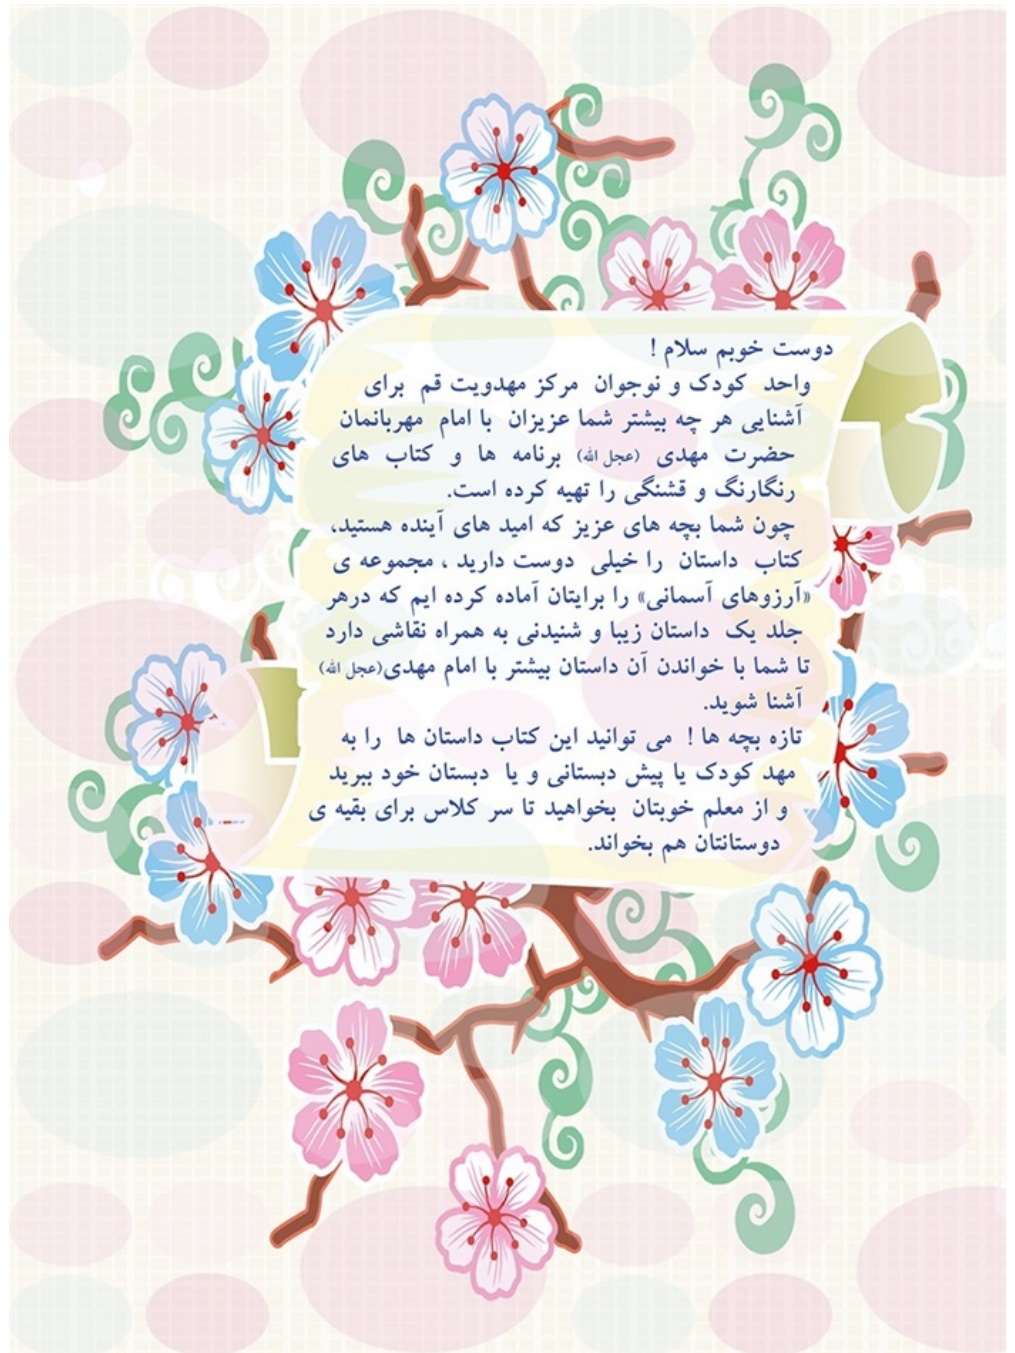 دوست خوبم سلام !
واحد کودک و نوجوان مرکز مهدویت قم برای
آشنایی هر چه بیشتر شما عزیزان با امام مهربانمان
حضرت مهدی (عجل الله) برنامه ها و کتاب های
رنگارنگ و قشنگی را تهیه کرده است.
چون شما بچه های عزیز که امید های آینده هستید،
کتاب داستان را خیلی دوست دارید ، مجموعه ی
«آرزوهای آسمانی» را برایتان آماده کرده ایم که درهر
جلد یک داستان زیبا و شنیدنی به همراه نقاشی دارد
تا شما با خواندن آن داستان بیشتر با امام مهدی(عجل الله)
آشنا شوید.
تازه بچه ها ! می توانید این کتاب داستان ها را به
مهد کودک یا پیش دبستانی و یا دبستان خود ببرید
و از معلم خوبتان بخواهید تا سر کلاس برای بقیه ی
دوستانتان هم بخواند.